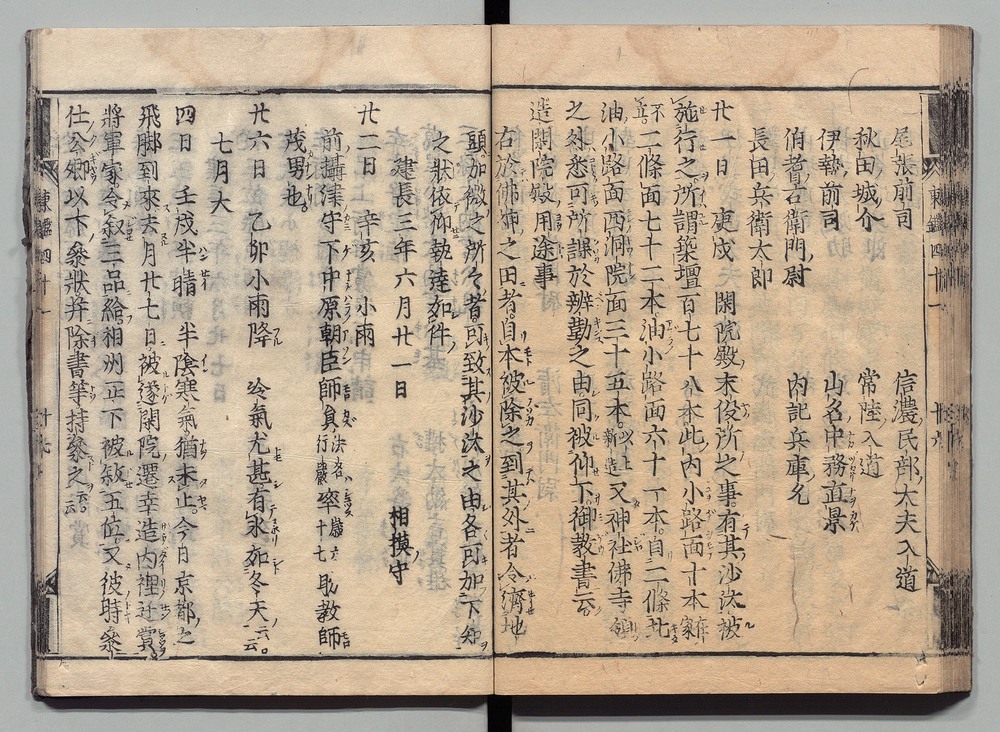 尾張前司 信濃民部大夫入道
秋田城介 常陸入道
伊勢前司 山名中務直景
伯耆右衛門尉 内記兵庫允
長田兵衛太郎
廿一日 庚戌 閑院殿未作所之事有其沙汰被
施行之所謂築壇百七十八本此内小路面十本
不二條面七十二本油小路面六十一本自二條北
油小路面西洞院面三十五本以上新造又神社佛寺
之外悉可所課於辨勤之由同被仰下御教書云
造閑院殿用途事
右於佛神之田者自本被除之到其外者令濟地
頭加徴之所々者可致其沙汰之由各可加下知
之状依仰執達如件
建長三年六月廿一日 相摸守
廿二日 辛亥 小雨
前攝津守下中原朝臣師員法名行嚴卒歳六十七助教師
茂男也
廿六日 乙卯小雨降 冷氣尤甚有氷如冬天云云
七月大
四日 壬戌半晴 半陰寒氣猶未止今日京都之
飛脚到來去月廿七日被遂閑院遷幸造内裡迁賞
將軍家令叙三品給相州正下被叙五位又彼時參
仕公卿以下參状并除書等持參之云云
東鑑四十一